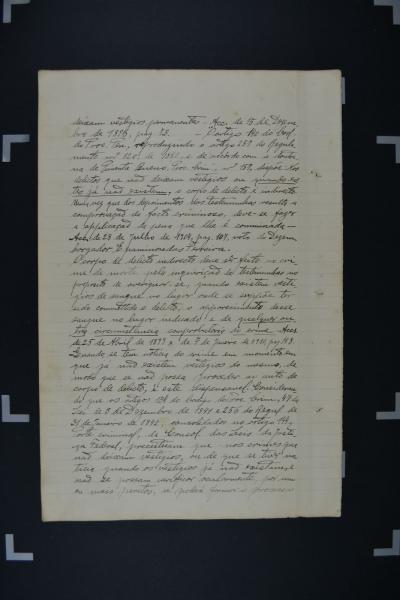 deixam vestigios permanentes - Acc. de 15 de Dezem
bro de 1896, pag. 13. - O artigo 140 do Cod.
do Proc. Pen., reproduzindo o artigo 257 do Regula
mento nº 120 de 1842, e de accordo com a doutri
na de Pimenta Bueno, Proc. Crim., nº 153, dispõe: Nos
delictos que não deixam vestigios ou quando es
tes já não existem, o corpo de delicto é indirecto
Uma vez que dos depoimentos das testemunhas resulta a
comprovação do facto criminoso, deve-se fazer
a applicação da pena que lhe é comminada -
Acc. de 23 de Julho de 1909, pag. 169, voto do Dezem
bargador Ferreira.
O corpo de delicto indirecto deve ser feito no cri
me de morte pela inquirição de testemunhas no
proposito de averiguar se, quando existia vesti
gios de sangue no lugar onde se suppõe ter
sido commettido o delicto, o apparecimento desse
sangue no lugar indicado e de qualquer ou
tra circumstancia comprobatoria do crime Accs.
de 25 de Abril de 1899 e de 7 de Janeiro de 1910, pag. 113.
Quando se tem noticia do crime em momento em
que já não existem vestigios do mesmo, de
modo que se não possa proceder ao auto de
corpo de delicto, é este dispensavel. Consideran
do que os artigos do Codigo do Proc. Crim., 47 da
Lei de 3 de Dezembro de 1841 e 256 do Regul. de
31 de Janeiro de 1842, consolidados no artigo
Parte criminal, da Consol. das Leis da Justi
ça Federal, preceituam que nos crimes que
não deixam vestigios, ou de que se tiver no
ticia quando os vestigios já não existam, e
não se possam verificar ocularmente por um
ou mais peritos, se poderá formar o processo